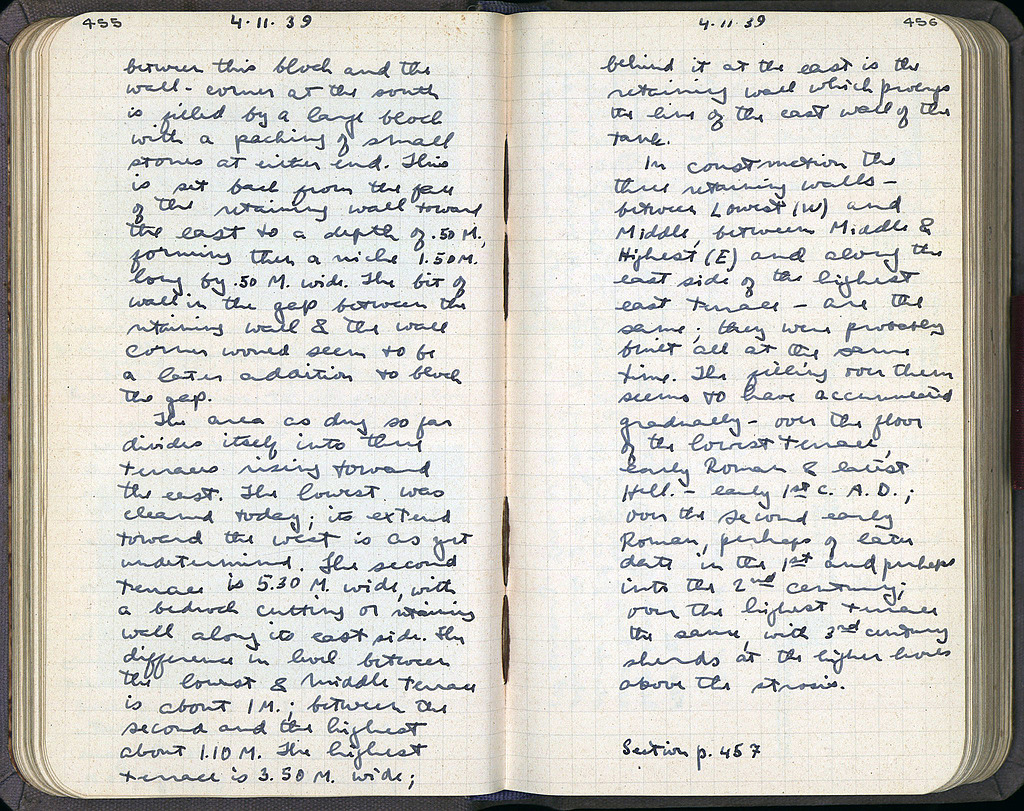 455
4.11.39
between this block and the
wall-corner at the south
is filled by a large block
with a packing of small
stones at either end. This
is set back from the face
of the retaining wall toward
the east to a depth of .50 M.,
forming then a niche 1.50 M.
long by .50 M. wide. The bit of
wall in the gap between the
retaining wall & the wall
corner would seem to be
a later addition to block
the gap.
The area as dug so far
divides itself into three
terraces rising toward
the east. The lowest was
cleared today; its extend
toward the west is as yet
undetermined. The second
terrace is 5.30 M. wide, with
a bedrock cutting or retaining
wall along its east side. The
difference in level between
the lowest & middle terrace
is about 1 M.; between the
second and the highest
about 1.10 M. The highest
terrace is 3.50 M. wide;
4.11.39
456
behind it at the east is the
retaining wall which
the line of the east wall of the
tank.
In construction the
three retaining walls -
between Lowest (W) and
Middle, between Middle &
Highest (E) and along the
east side of the highest
east terrace - are the
same; they were probably
built all at the same
time. The filling over them
seems to have accumulated
gradually - over the floor
of the lowest terrace,
early Roman & latest
Hell. - early 1st c. A.D.;
over the second early
Roman, perhaps of later
date in the 1st and perhaps
into the 2nd century;
over the highest terrace
the same, with 3rd century
sherds at the higher levels
above the strosis.
Section p. 457